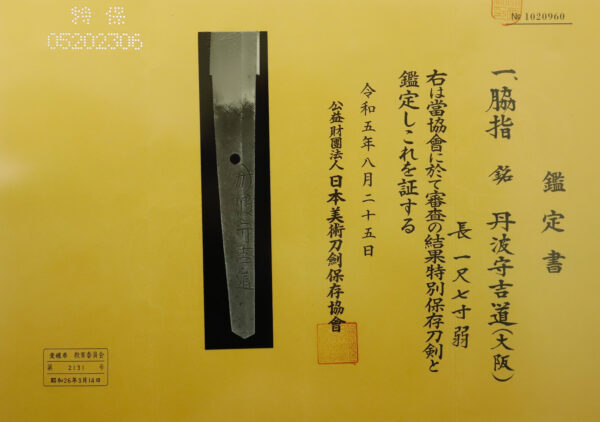 № 1020960
鑑定書
一、脇指 銘 丹波守吉道(大阪)
長 一尺七寸弱
右は當協會に於て審査の結果特別保存刀劍と
鑑定しこれを証する
令和五年八月二十五日
公益財團法人 日本美術刀劍保存協會
丹波守吉道
特保
05202306
愛媛県 教育委員会
第 2131 号
昭和26年3月14日